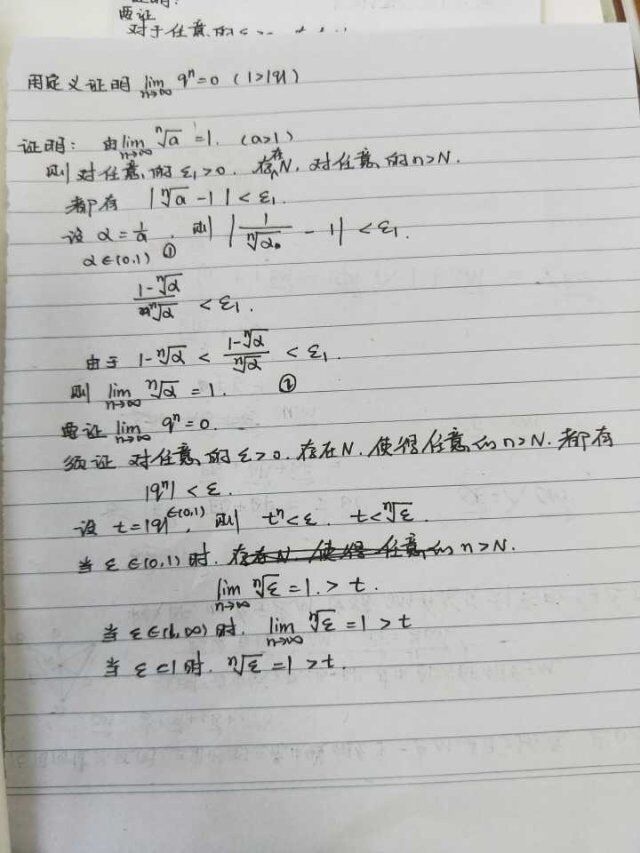 要证
对于任意的ε>0
用定义证明 lim n→∞ qⁿ=0 (1>|q|)
证明: 由 lim n→∞ ⁿ√a =1. (a>1)
则对任意的 ε₁>0. 存在N, 对任意的n>N.
都有 |ⁿ√a -1| < ε₁.
设 α = 1/a , 则 | 1/ⁿ√α - 1| < ε₁.
α∈(0,1) ①
(1-ⁿ√α)/ⁿ√α < ε₁
由于 1-ⁿ√α < (1-ⁿ√α)/ⁿ√α < ε₁.
则 lim n→∞ ⁿ√α = 1. ②
要证 lim n→∞ qⁿ=0.
须证 对任意的 ε>0. 存在N. 使得任意的n>N. 都有
|qⁿ| < ε.
设 t=|q| ∈(0,1), 则 tⁿ<ε. t<ⁿ√ε.
当 ε∈(0,1)时. 存在N 使得 任意的 n>N.
lim n→∞ ⁿ√ε =1. > t.
当 ε∈(1,∞)时. lim n→∞ ⁿ√ε =1 > t
当 ε=1时. ⁿ√ε =1 > t.